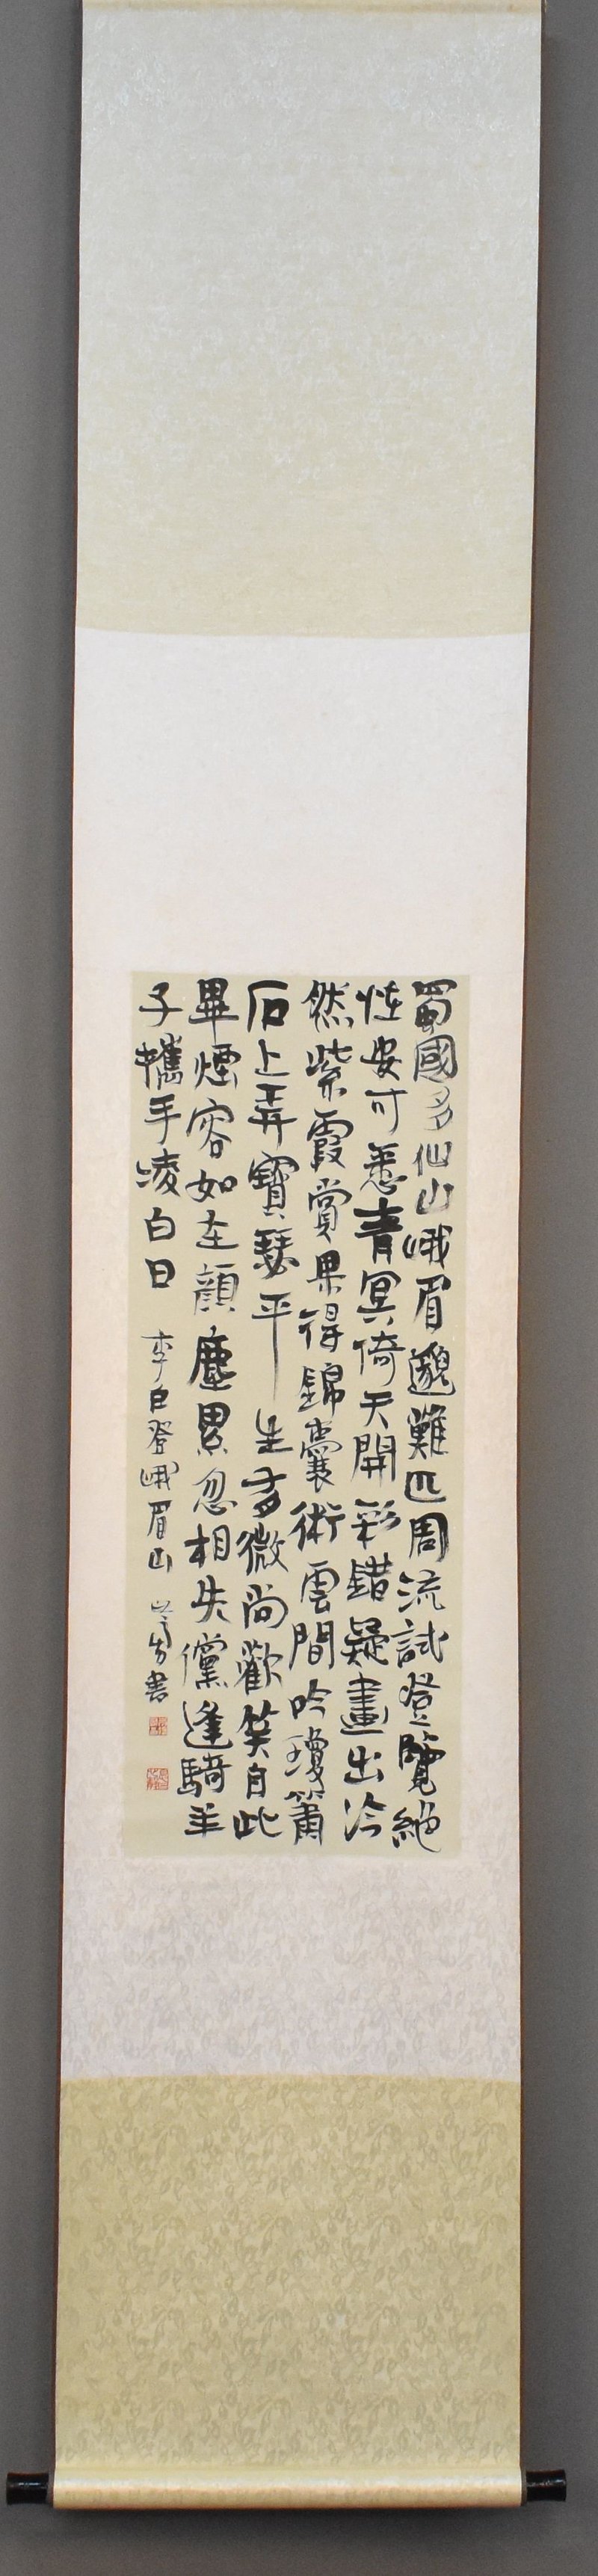 蜀國多仙山峨眉邈難匹周流試登覽絶
怪安可悉青冥倚天開彩錯疑畫出泠
然紫霞賞果得錦囊術雲間吟瓊簫
石上弄寶瑟平生有微尚歡笑自此
畢煙容如在顔塵累忽相失儻逢騎羊
子攜手凌白日
李白登峨眉山 書